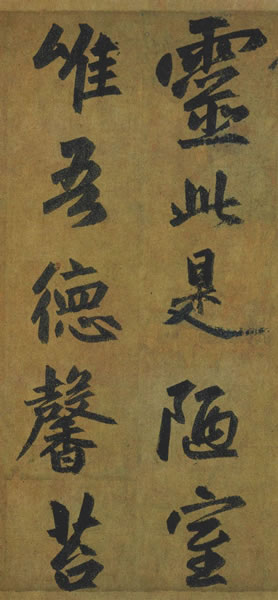 靈此是陋室
唯吾德馨苔